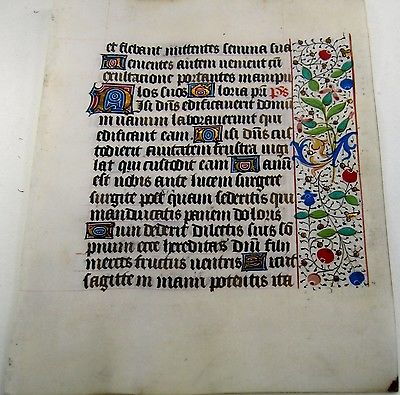 et flebant mittentes semina sua
Venientes autem venient cum
exultacione portantes manipu
los suos Gloria pri ps
Nisi dns edificaverit domu
in vanum laboraverunt qui
edificant eam Nisi dns cus
todierit civitatem frustra vigi
lat qui custodit eam Vanu
est vobis ante lucem surgere
surgite post quam sederitis qui
manducatis panem doloris
Cum dederit dilectis suis so
pnium ecce hereditas dni filii
merces fructus ventris Sicut
sagitte in manu potentis ita